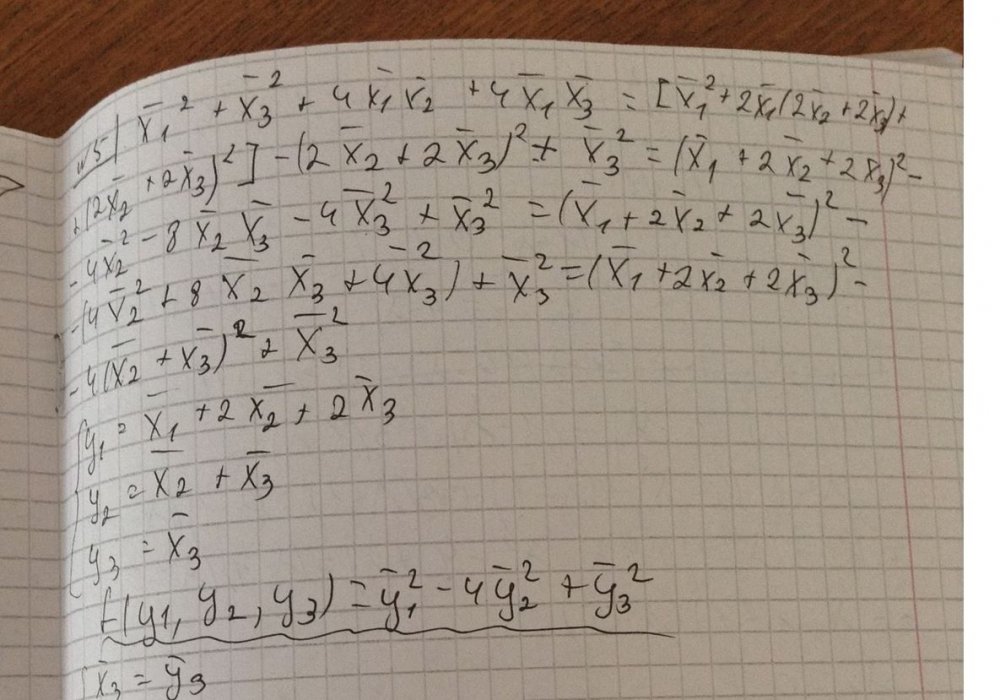 №5| x̄₁² + x̄₃² + 4x̄₁x̄₂ + 4x̄₁x̄₃ = [x̄₁² + 2x̄₁(2x̄₂ + 2x̄₃) +
+ (2x̄₂ + 2x̄₃)²] - (2x̄₂ + 2x̄₃)² + x̄₃² = (x̄₁ + 2x̄₂ + 2x₃)² -
- 4x̄₂² - 8x̄₂x̄₃ - 4x̄₃² + x̄₃² = (x̄₁ + 2x̄₂ + 2x̄₃)² -
- (4x̄₂² + 8x̄₂x̄₃ + 4x̄₃²) + x̄₃² = (x̄₁ + 2x̄₂ + 2x̄₃)² -
- 4(x̄₂ + x̄₃)² + x̄₃²
{y₁ = x̄₁ + 2x̄₂ + 2x̄₃
y₂ = x̄₂ + x̄₃
y₃ = x̄₃
f(y₁, y₂, y₃) = ȳ₁² - 4ȳ₂² + ȳ₃²
{x̄₃ = ȳ₃